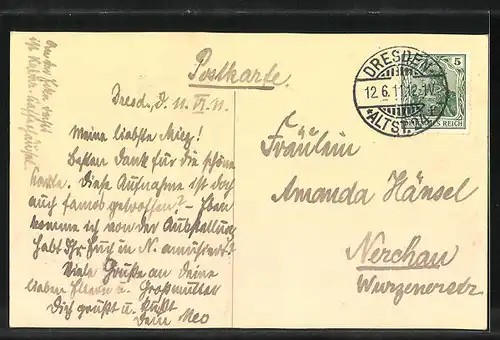 Postkarte.
DRESDEN
12.6.11.12-1V.
*ALTST.
5
DEUTSCHES REICH
Dresd., d. 11. VI. 11.
Meine liebste Miez!
Besten Dank für die schöne
Karte. Diese Aufnahme ist doch
auch famos getroffen? – Eben
komme ich von der Ausstellung
habt Ihr Zug in N.
Viele Grüße an Deine
lieben Eltern u. Großmutter
Dich grüßt u. küßt
Deine
Fräulein
Amanda Hänsel
Nerchau
Wurzenerstr.